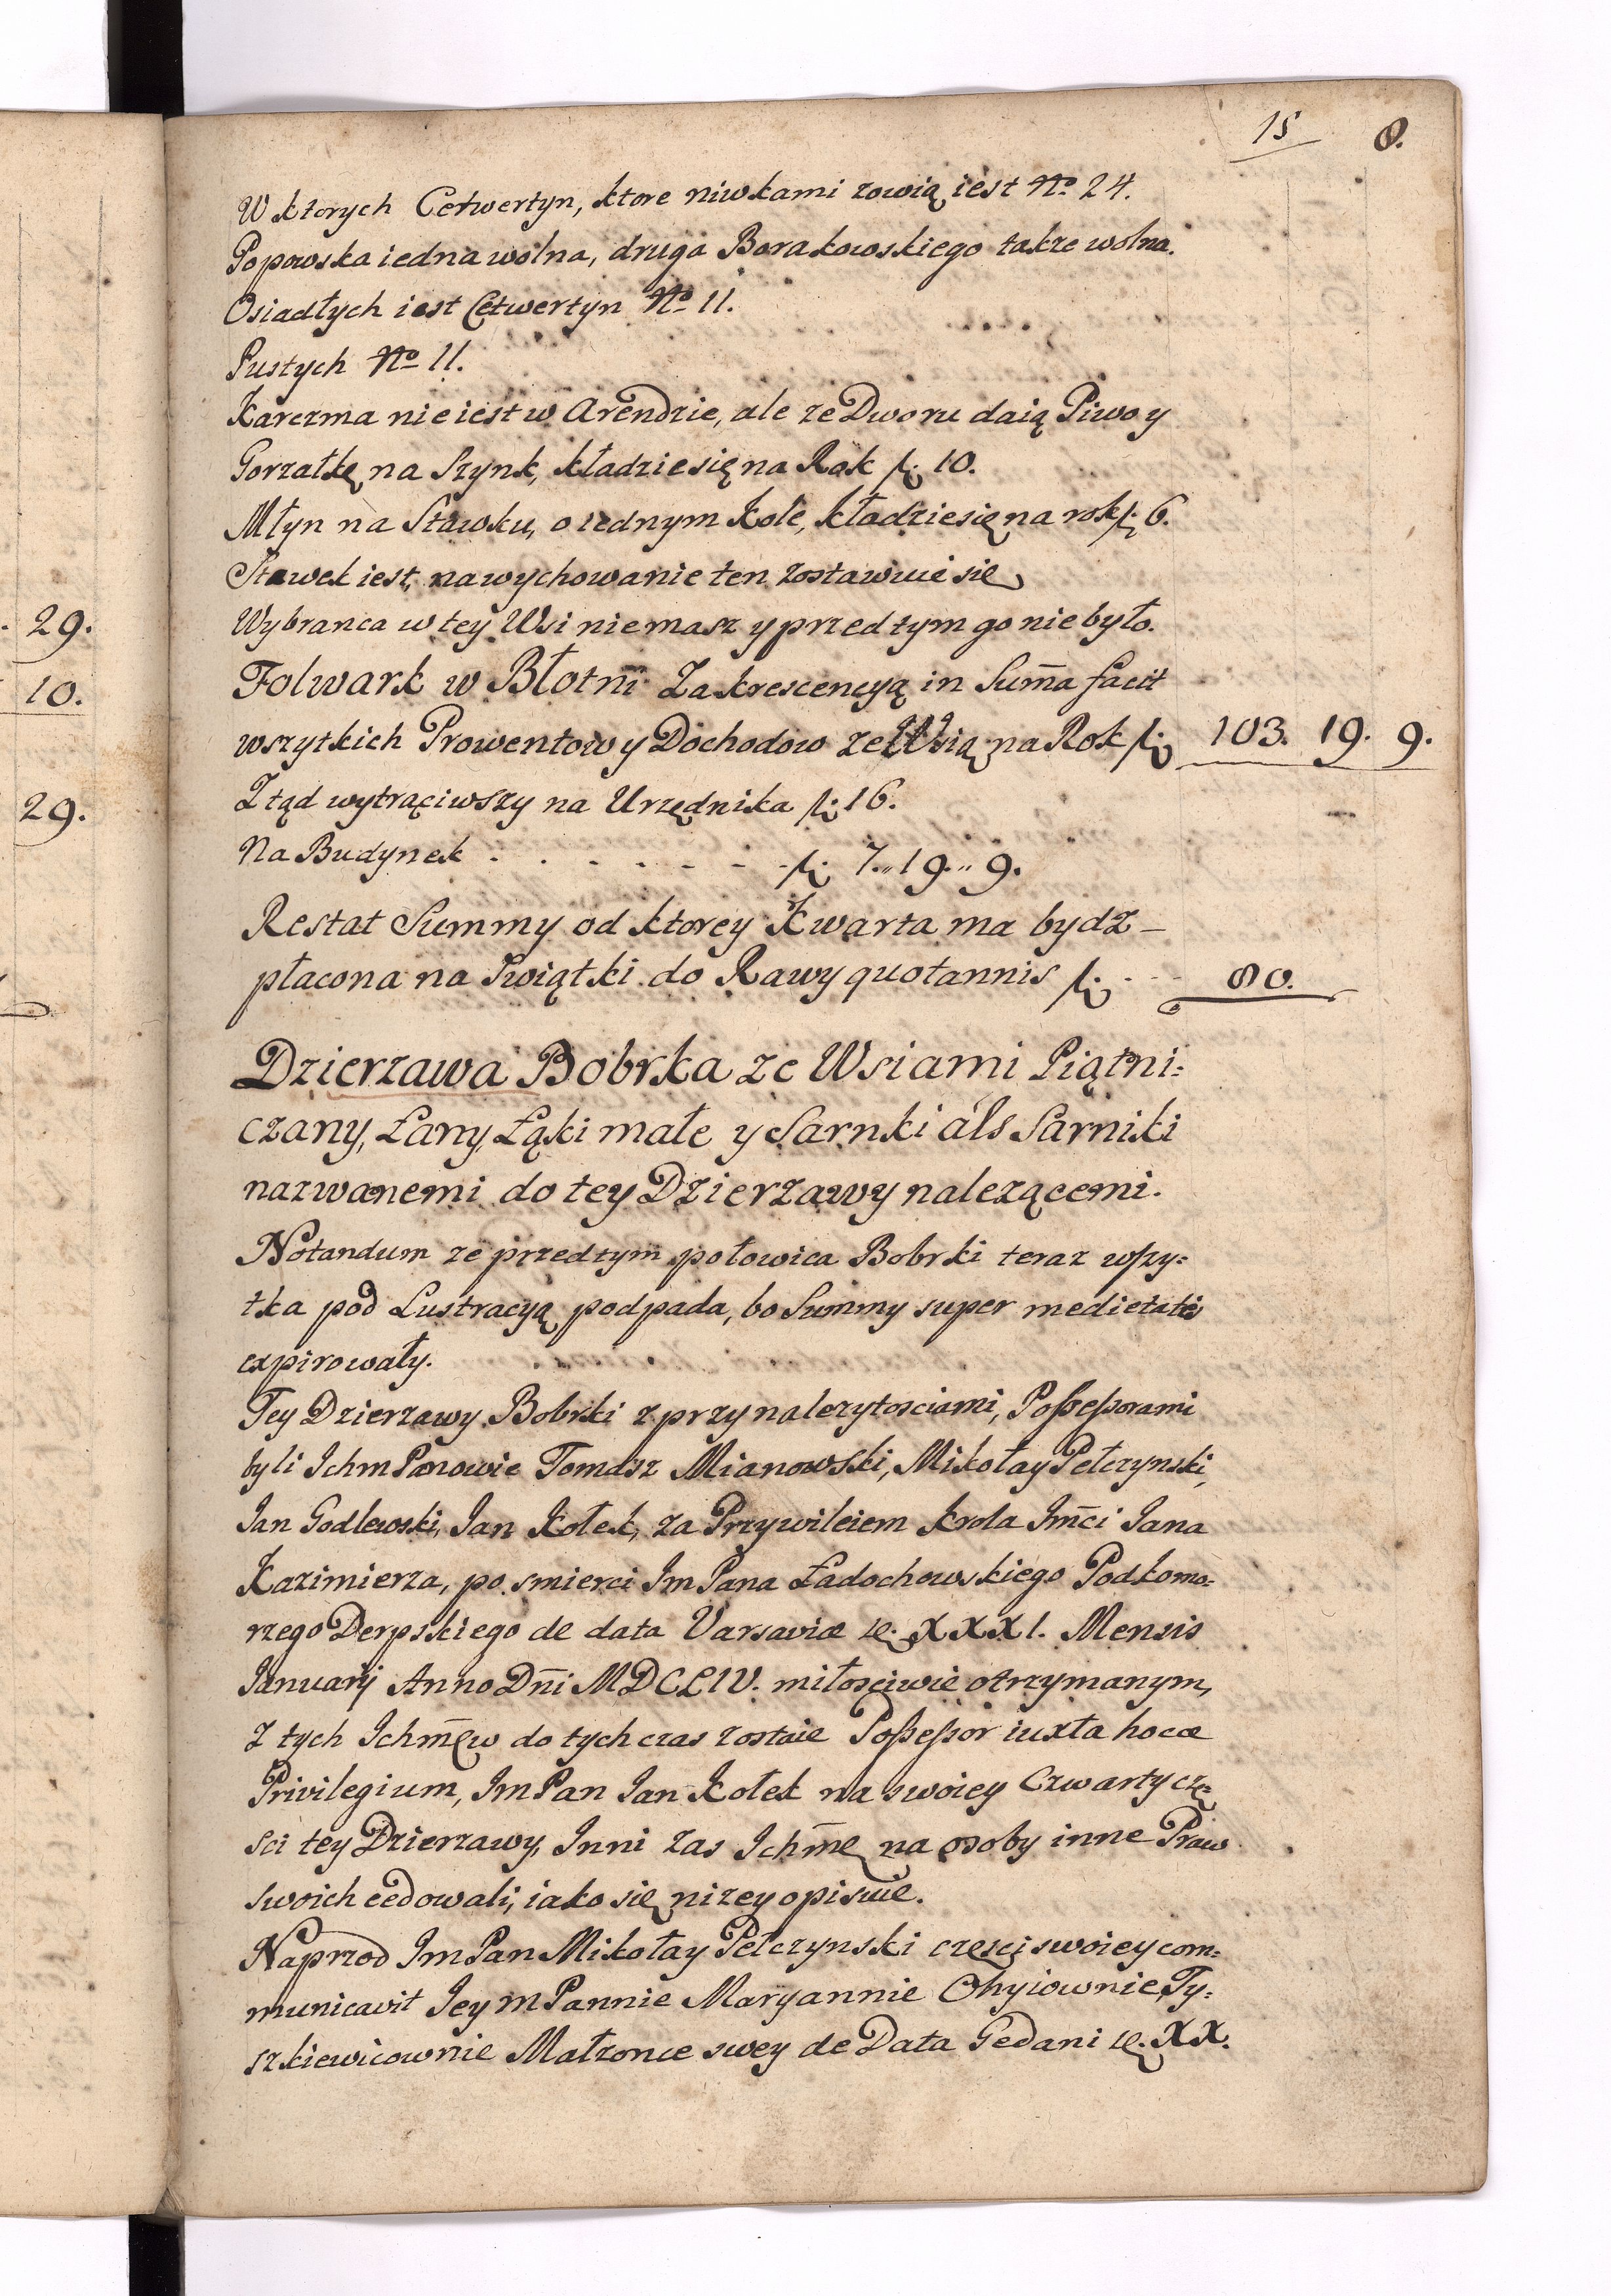 15 8.
W ktorych Cetwertyn, ktore niwkami zowią iest No 24.
Popowska iedna wolna, druga Borakowskiego takze wolna.
Osiadłych iest Cetwertyn No 11.
Pustych No 11.
Karczma nie iest w Arendzie, ale ze Dworu daią Piwo y
Gorzałkę na Szynk, kładzie się na Rok f. 10.
Młyn na Stawku, o iednym Kole, kładzie się na rok f. 6.
Stawek iest, na wychowanie ten zostawuie się
Wybranca w tey Wsi niemasz y przedtym go nie było.
Folwark w Błotni Za krescencyą in Sum̄a facit
wszytkich Prowentow y Dochodow ze Wsią na Rok f. 103. 19. 9.
Ztąd wytrąciwszy na Urzędnika f. 16.
Na Budynek - - - - - - - f. 7.. 19.. 9.
Restat Summy od ktorey Kwarta ma bydz –
płacona na Swiątki do Rawy quotannis f. - - 80.
Dzierzawa Bobrka ze Wsiami Piątni=
czany, Łany, Łąki małe y Sarnki als Sarniki
nazwanemi do tey Dzierzawy nalezącemi.
Notandum ze przedtym połowica Bobrki teraz wszy=
tka pod Lustracyą podpada, bo Summy super medietatis
expirowały.
Tey Dzierzawy Bobrki z przynalezytosciami, Possessorami
byli Ichm Panowie Tomasz Mianowski, Mikołay Pełczynski,
Ian Godlewski, Ian Kołek, za Przywileiem Krola Im̄ci Iana
Kazimierza, po smierci Im Pana Ładochowskiego Podkomo=
rzego Derpskiego de data Varsaviæ XXXI. Mensis
Ianuarij Anno Dn̄i MDCLIV. miłosciwie otrzymanym,
Z tych Ichm̄ęw do tych czas zostaie Possessor iuxta hocce
Privilegium, Im Pan Ian Kołek na swoiey Czwarty czę=
sci tey Dzierzawy, Inni zas Ichm̄ę na osoby inne Praw
swoich cedowali, iako się nizey opisuie.
Naprzod Im Pan Mikołay Pełczynski częsci swoiey com=
municavit Iey m Pannie Maryannie Chyiownie, Ty=
szkiewicownie Małzonce swey de Data Gedani XX.
29.
10.
29.